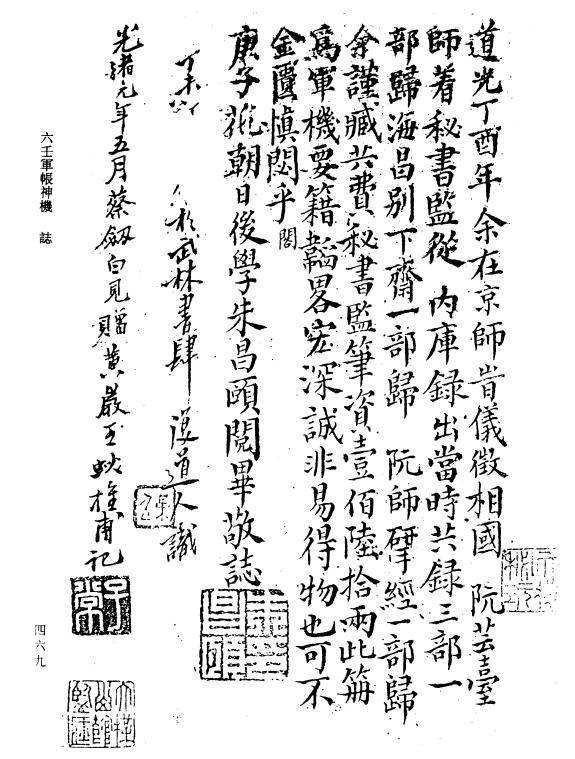 道光丁酉年余在京師旹儀徵相國 阮芸臺
師着秘書監從 内庫録出當時共録三部一
部歸海昌別下齋一部歸 阮師揅經一部歸
余謹藏共費秘書監筆資壹佰陸拾兩此册
爲軍機要籍韜畧宏深誠非易得物也可不
金匱慎閟乎
閣
庚子花朝日後學朱昌頤閲畢敬誌
丁未 於武林書肆 道人識
光緒元年五月蔡劔白見贈黃巖王 甫記
六壬軍帳神機 誌
四六九